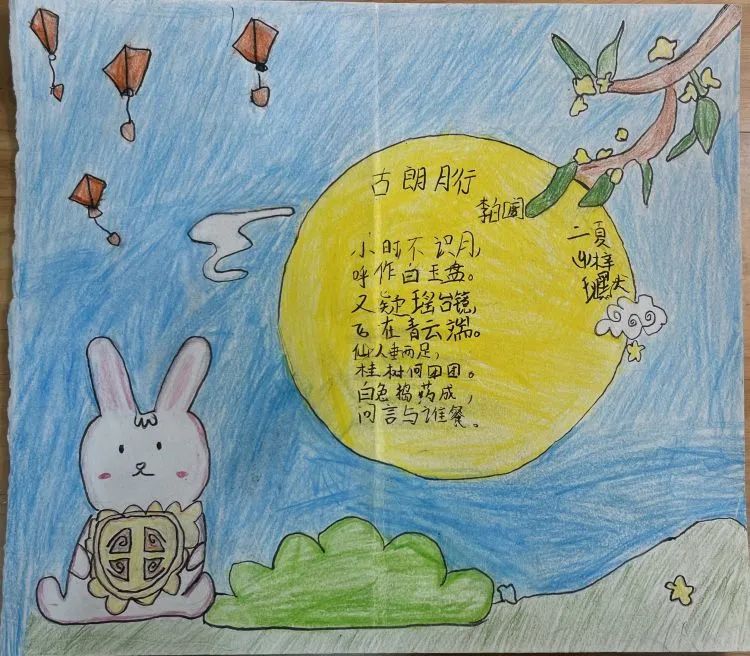 古朗月行
李白
小时不识月,
呼作白玉盘。
又疑瑶台镜,
飞在青云端。
仙人垂两足,
桂树何田团。
白兔捣药成,
问言与谁餐。
二夏
梓